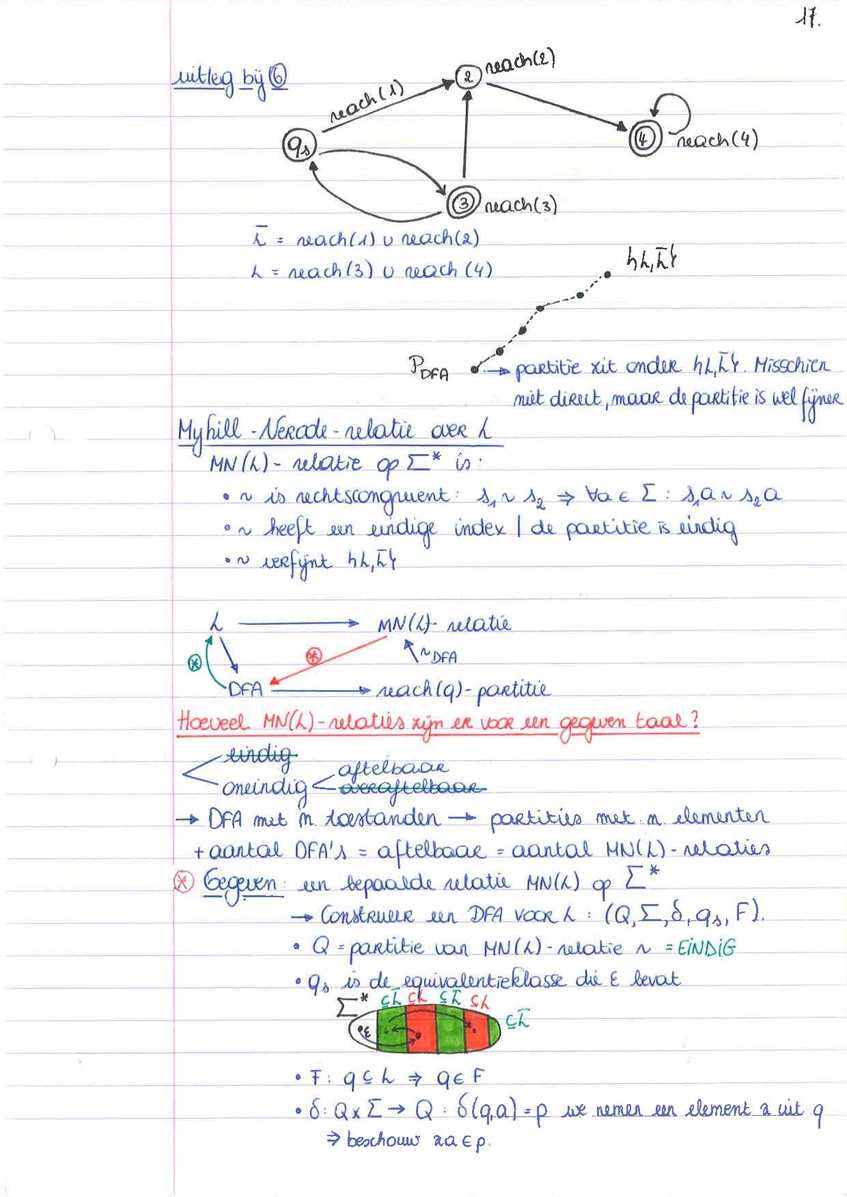 17.
uitleg bij ⑥
reach(1)
2 reach(2)
qs
4 reach(4)
3 reach(3)
L̄ = reach(1) ∪ reach(2)
L = reach(3) ∪ reach(4)
{L,L̄}
P_DFA → partitie zit onder {L,L̄}. Misschien
niet direct, maar de partitie is wel fijner
Myhill-Nerode-relatie over L
MN(L)-relatie op Σ* is:
• ~ is rechtscongruent: s₁ ~ s₂ ⇒ ∀a ∈ Σ : s₁a ~ s₂a
• ~ heeft een eindige index | de partitie is eindig
• ~ verfijnt {L,L̄}
L → MN(L)-relatie
~DFA
DFA → reach(q)-partitie
Hoeveel MN(L)-relaties zijn er voor een gegeven taal?
eindig
oneindig < aftelbaar
overaftelbaar
→ DFA met n toestanden → partities met n elementen
+ aantal DFA's = aftelbaar = aantal MN(L)-relaties
⊛ Gegeven: een bepaalde relatie MN(L) op Σ*
→ Construeer een DFA voor L : (Q,Σ,δ,qs,F).
• Q = partitie van MN(L)-relatie ~ = EINDIG
• qs is de equivalentieklasse die ε bevat
Σ* ⊆L̄ ⊆L ⊆L̄ ⊆L
ε ⊆L̄
• F: q ⊆ L ⇒ q ∈ F
• δ: Q × Σ → Q : δ(q,a) = p we nemen een element x uit q
⇒ beschouw xa ∈ p.